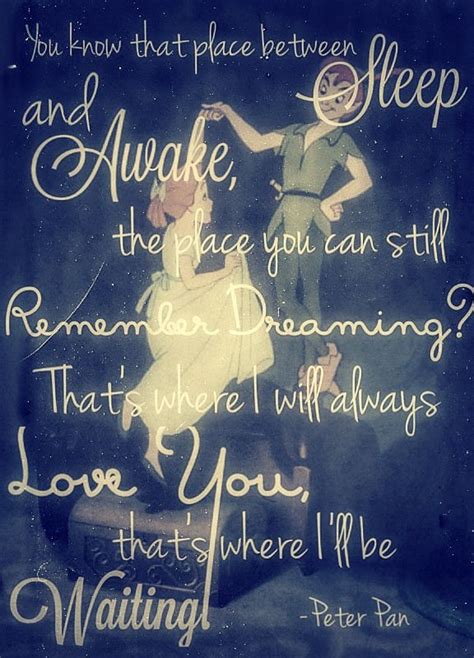 You know that place between
Sleep
and
Awake,
the place you can still
Remember Dreaming?
That's where I will always
Love You,
that's where I'll be
Waiting!
-Peter Pan